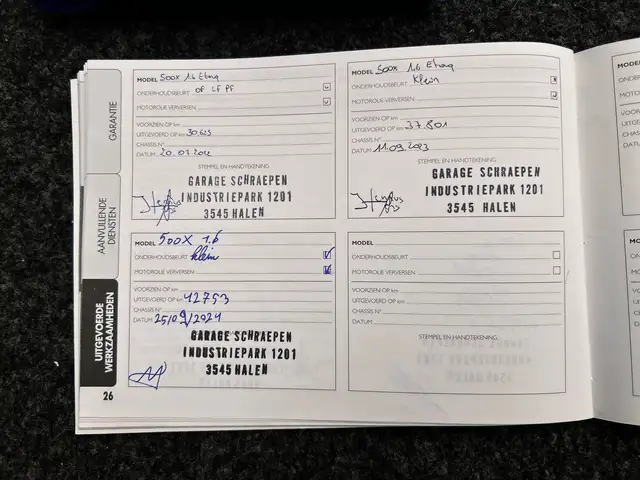 GARANTIE
AANVULLENDE
DIENSTEN
UITGEVOERDE
WERKZAAMHEDEN
MODEL 500X 1.6 Etorq
ONDERHOUDSBEURT OF LF PF
MOTOROLIE VERVERSEN
VOORZIEN OP km
UITGEVOERD OP km 30625
CHASSIS N°
DATUM 20.07.2022
STEMPEL EN HANDTEKENING
GARAGE SCHRAEPEN
INDUSTRIEPARK 1201
3545 HALEN
MODEL 500X 1.6 Etorq
ONDERHOUDSBEURT Klein
MOTOROLIE VERVERSEN
VOORZIEN OP km
UITGEVOERD OP km 37.801
CHASSIS N°
DATUM 11.09.2023
STEMPEL EN HANDTEKENING
GARAGE SCHRAEPEN
INDUSTRIEPARK 1201
3545 HALEN
MODEL 500X 1.6
ONDERHOUDSBEURT klein
MOTOROLIE VERVERSEN
VOORZIEN OP km
UITGEVOERD OP km 42753
CHASSIS N°
DATUM 25/09/2024
GARAGE SCHRAEPEN
INDUSTRIEPARK 1201
3545 HALEN
MODEL
ONDERHOUDSBEURT
MOTOROLIE VERVERSEN
VOORZIEN OP km
UITGEVOERD OP km
CHASSIS N°
DATUM
STEMPEL EN HANDTEKENING
26